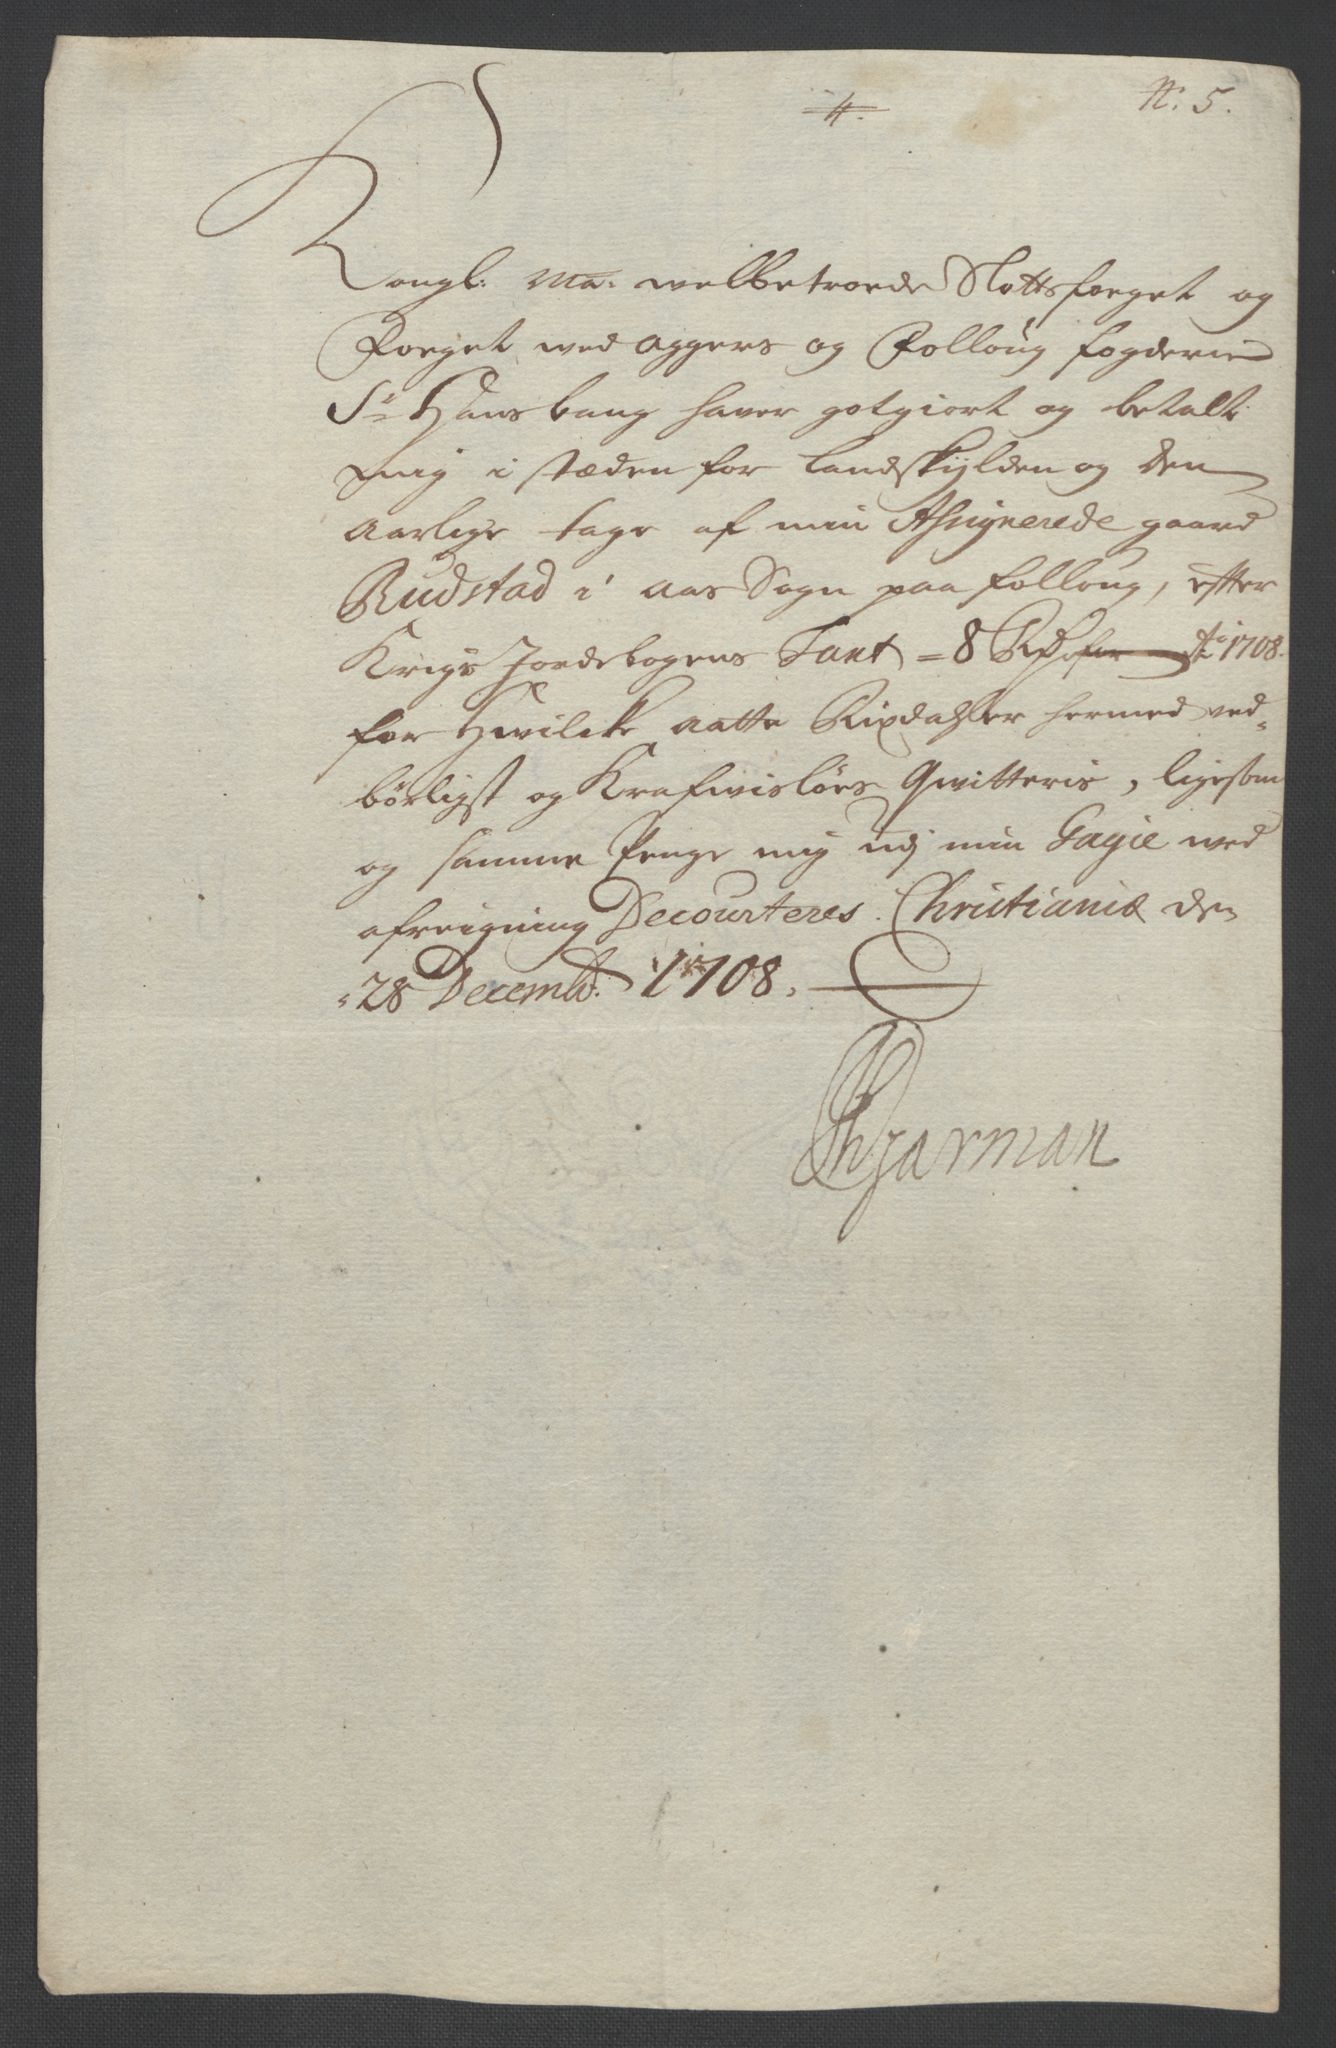 4.
N: 5.
Kongl: Ma: welbetroede Slottsfoeget og
Foeget wed aggers og Folloug fogderie
Sr Hans bang hawer gotgiort og betalt
mig i stæden for Landskylden og den
aarlige tage af min Assignerede gaard
Rudstad i aas Sogn paa folloug, efter
Krigs Jordebogens Taxt = 8 Rdr for Ao 1708.
for Hwilcke aatte Rixdahler hermed ved-
börligst og Krafwislöes Qwitteris, ligesom
og samme Penge mig udj min Gagie wed
afreigning Decourteres. Christianiæ den
28 Decembr: 1708.
Gharman